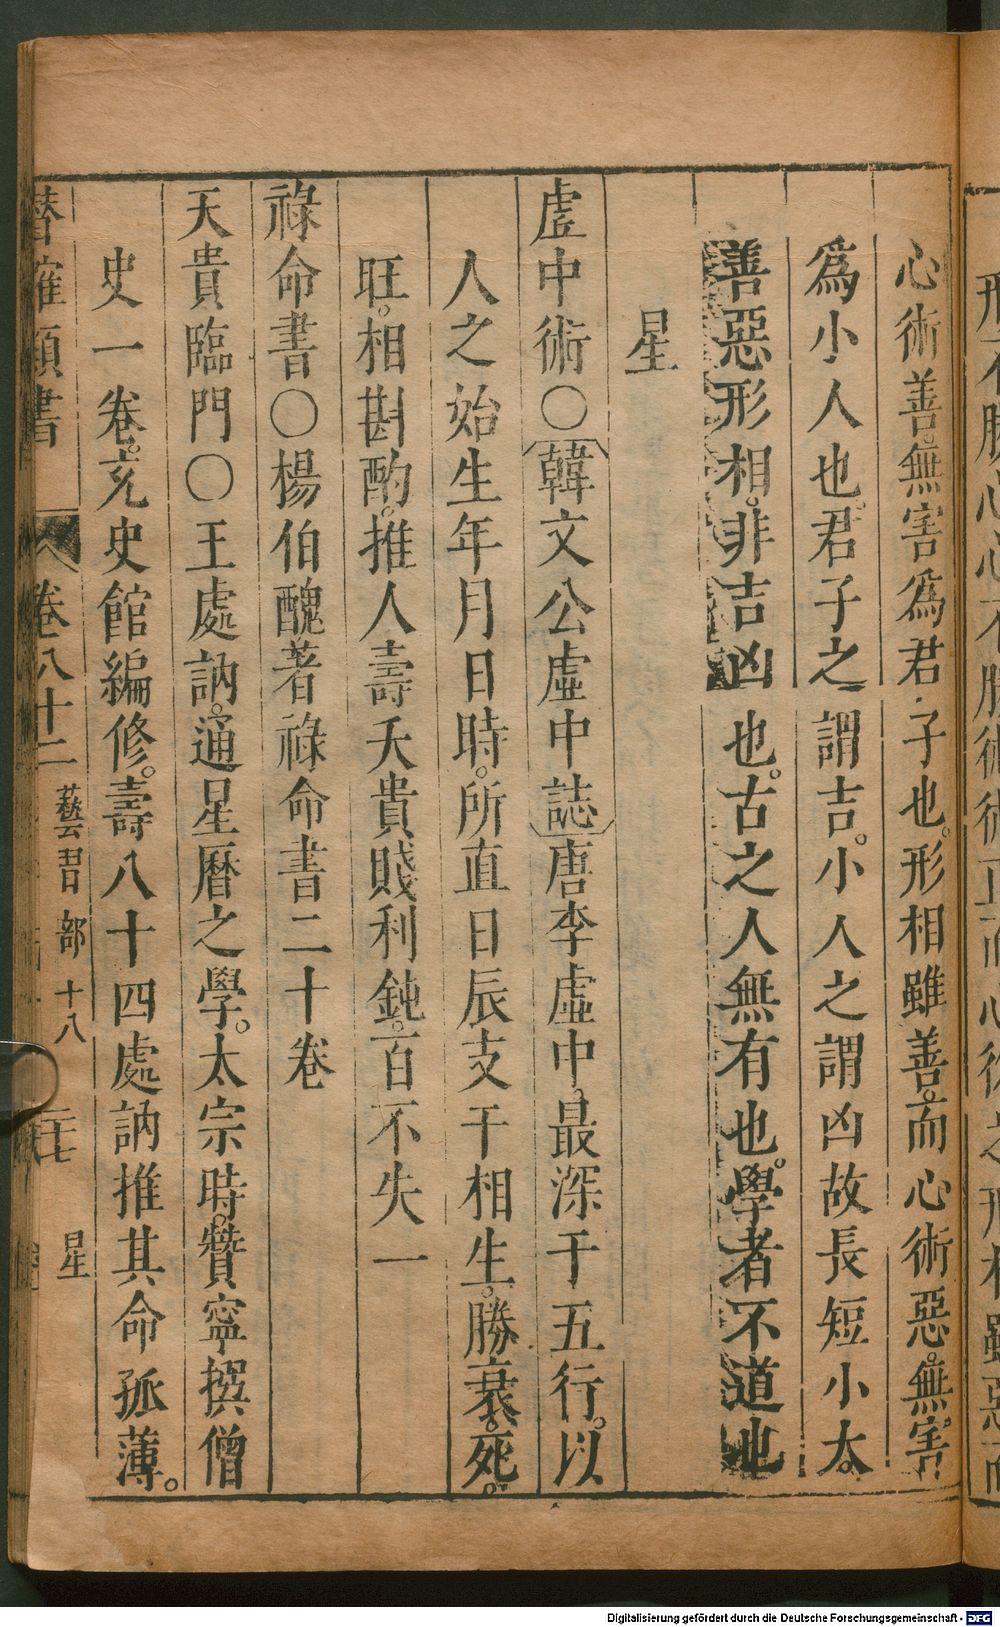 心術善。無害為君子也。形相雖善。而心術惡。無害
為小人也。君子之謂吉。小人之謂凶故長短小大。
善惡形相。非吉凶也。古之人無有也。學者不道也
星
虛中術〇韓文公虛中誌唐李虛中。最深于五行。以
人之始生年月日時。所直日辰支干相生。勝衰。死。
旺。相斟酌。推人壽夭貴賤利鈍。百不失一
祿命書〇楊伯醜著祿命書二十卷
天貴臨門〇王處訥。通星曆之學。太宗時。贊寧撰僧
史一卷。充史館編修。壽八十四處訥推其命孤薄。
卷八十二 藝習部十八 星
Digitalisierung gefördert durch die Deutsche Forschungsgemeinschaft - DFG